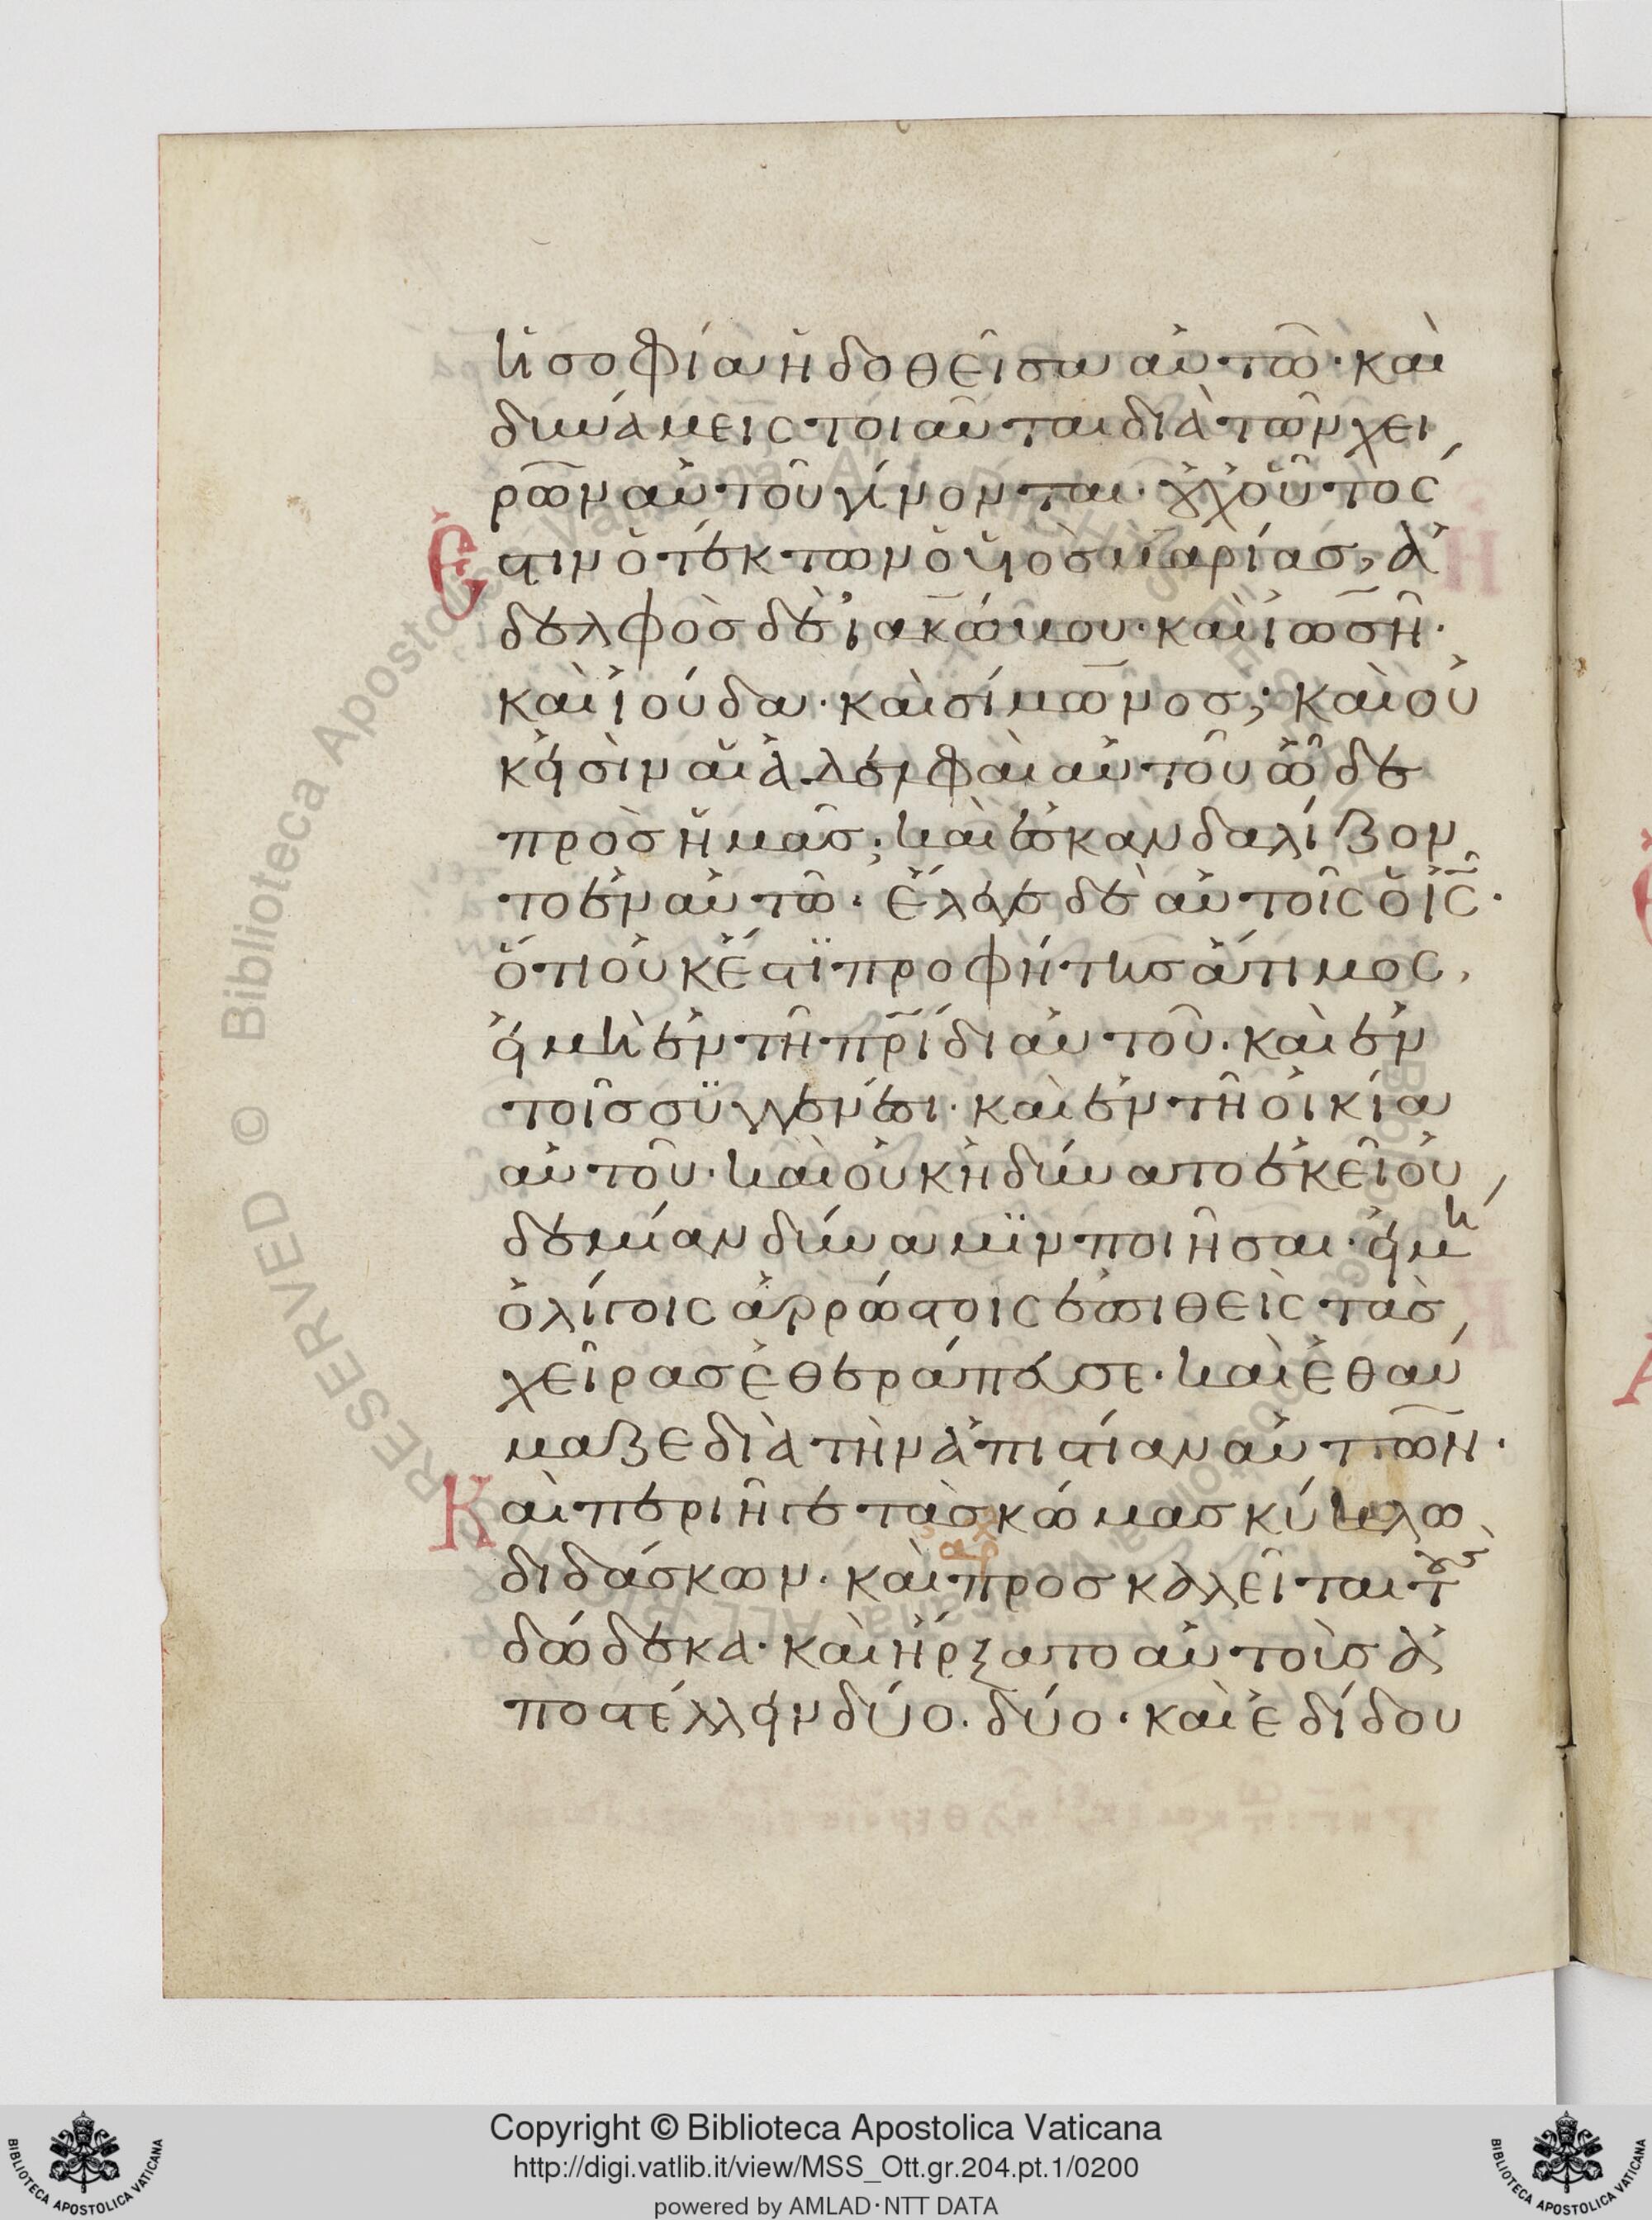 ἡ σοφία ἡ δοθεῖσα αὐτῶ· καὶ
δυνάμεις τοιαῦται διὰ τῶν χει
ρῶν αὐτοῦ γίνονται· οὐχ οὗτός
Ἐστιν ὁ τέκτων ὁ υἱὸς μαρίας, ἀ
δελφὸς δὲ ἰακώβου· καὶ ἰωσῆ·
καὶ ἰούδα· καὶ σίμωνος; καὶ οὐ
κ εἰσὶν αἱ ἀδελφαὶ αὐτοῦ ὧδε
πρὸς ἡμᾶς; καὶ ἐσκανδαλίζον
το ἐν αὐτῶ· ἔλεγε δὲ αὐτοῖς ὁ ἰς̅·
ὅτι οὐκ ἔστι προφήτης ἄτιμος,
εἰ μὴ ἐν τῆ πρ̅ίδι αὐτοῦ· καὶ ἐν
τοῖς συγγενέσι· καὶ ἐν τῆ οἰκία
αὐτοῦ· καὶ οὐκ ἠδύνατο ἐκεῖ οὐ
δεμίαν δύναμιν ποιῆσαι· εἰ μὴ
ὀλίγοις ἀρρώστοις ἐπιθεὶς τὰς
χεῖρας ἐθεράπευσε· καὶ ἐθαύ
μαζε διὰ τὴν ἀπιστίαν αὐτῶν·
Καὶ περιῆγε τὰς κώμας κύκλω
διδάσκων· καὶ προσκαλεῖται τοὺς
δώδεκα· καὶ ἤρξατο αὐτοὺς ἀ
ποστέλλειν δύο· δύο· καὶ ἐδίδου
RESERVED © Biblioteca Apostolica Vaticana
Copyright © Biblioteca Apostolica Vaticana
http://digi.vatlib.it/view/MSS_Ott.gr.204.pt.1/0200
powered by AMLAD·NTT DATA
BIBLIOTECA APOSTOLICA VATICANA
BIBLIOTECA APOSTOLICA VATICANA